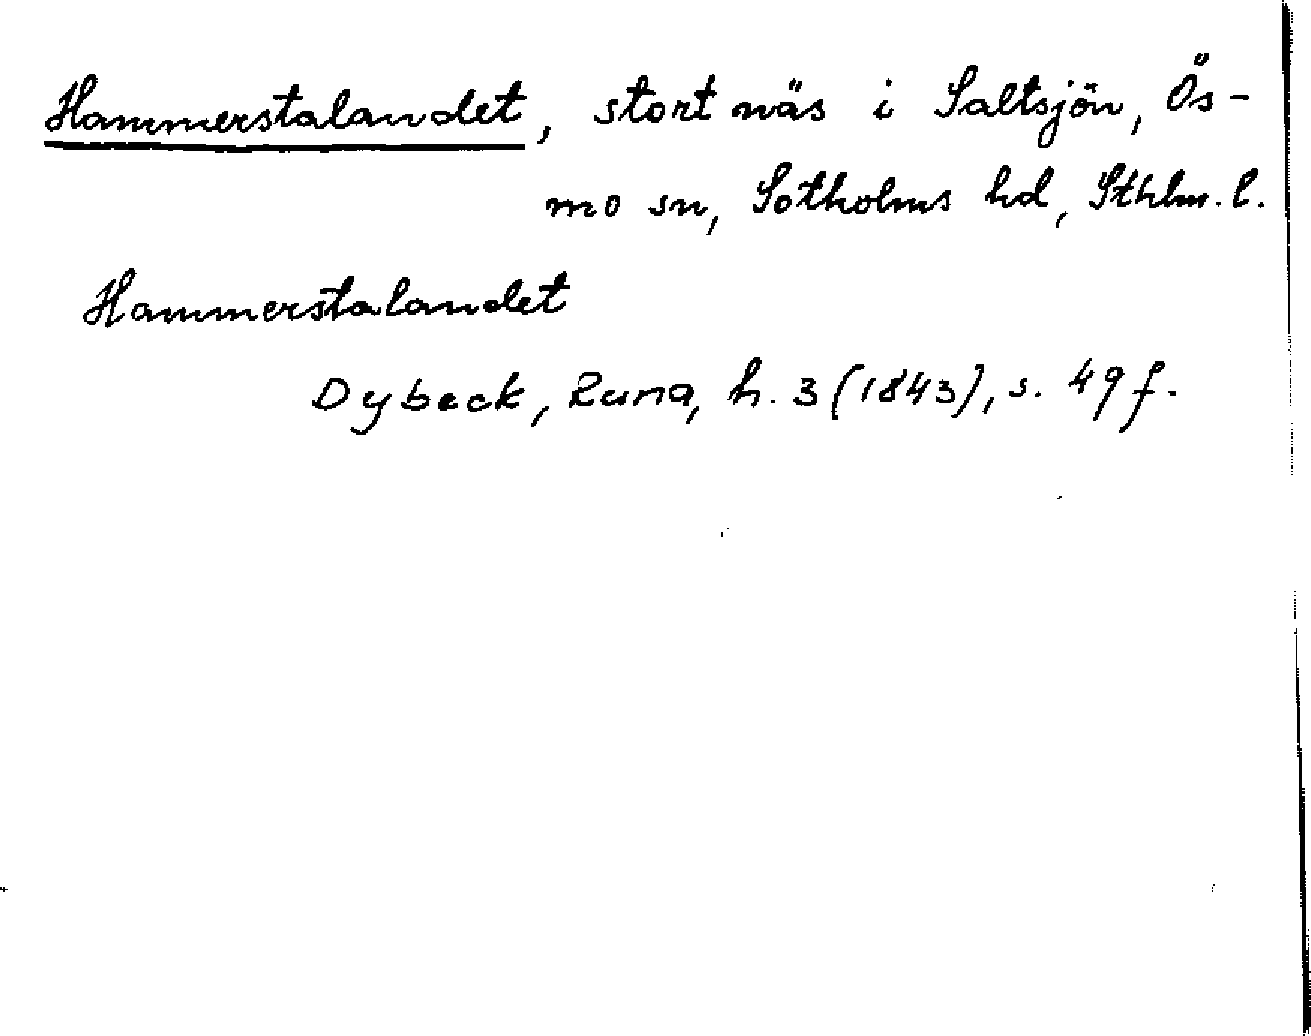 Hammerstalandet, stort näs i Saltsjön, Ös-
mo sn, Sotholms hd, Sthlm. l.
Hammerstalandet
Dybeck, Runa, h. 3 (1843), s. 49 f.